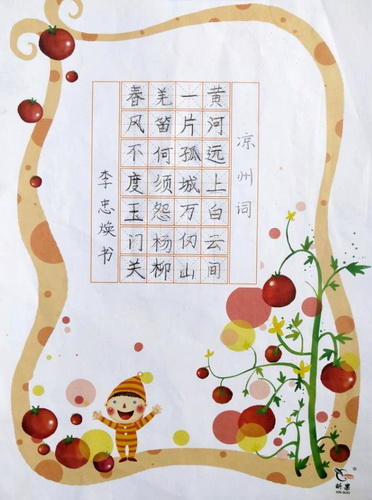 凉州词
黄河远上白云间
一片孤城万仞山
羌笛何须怨杨柳
春风不度玉门关
李忠焕书
昕果